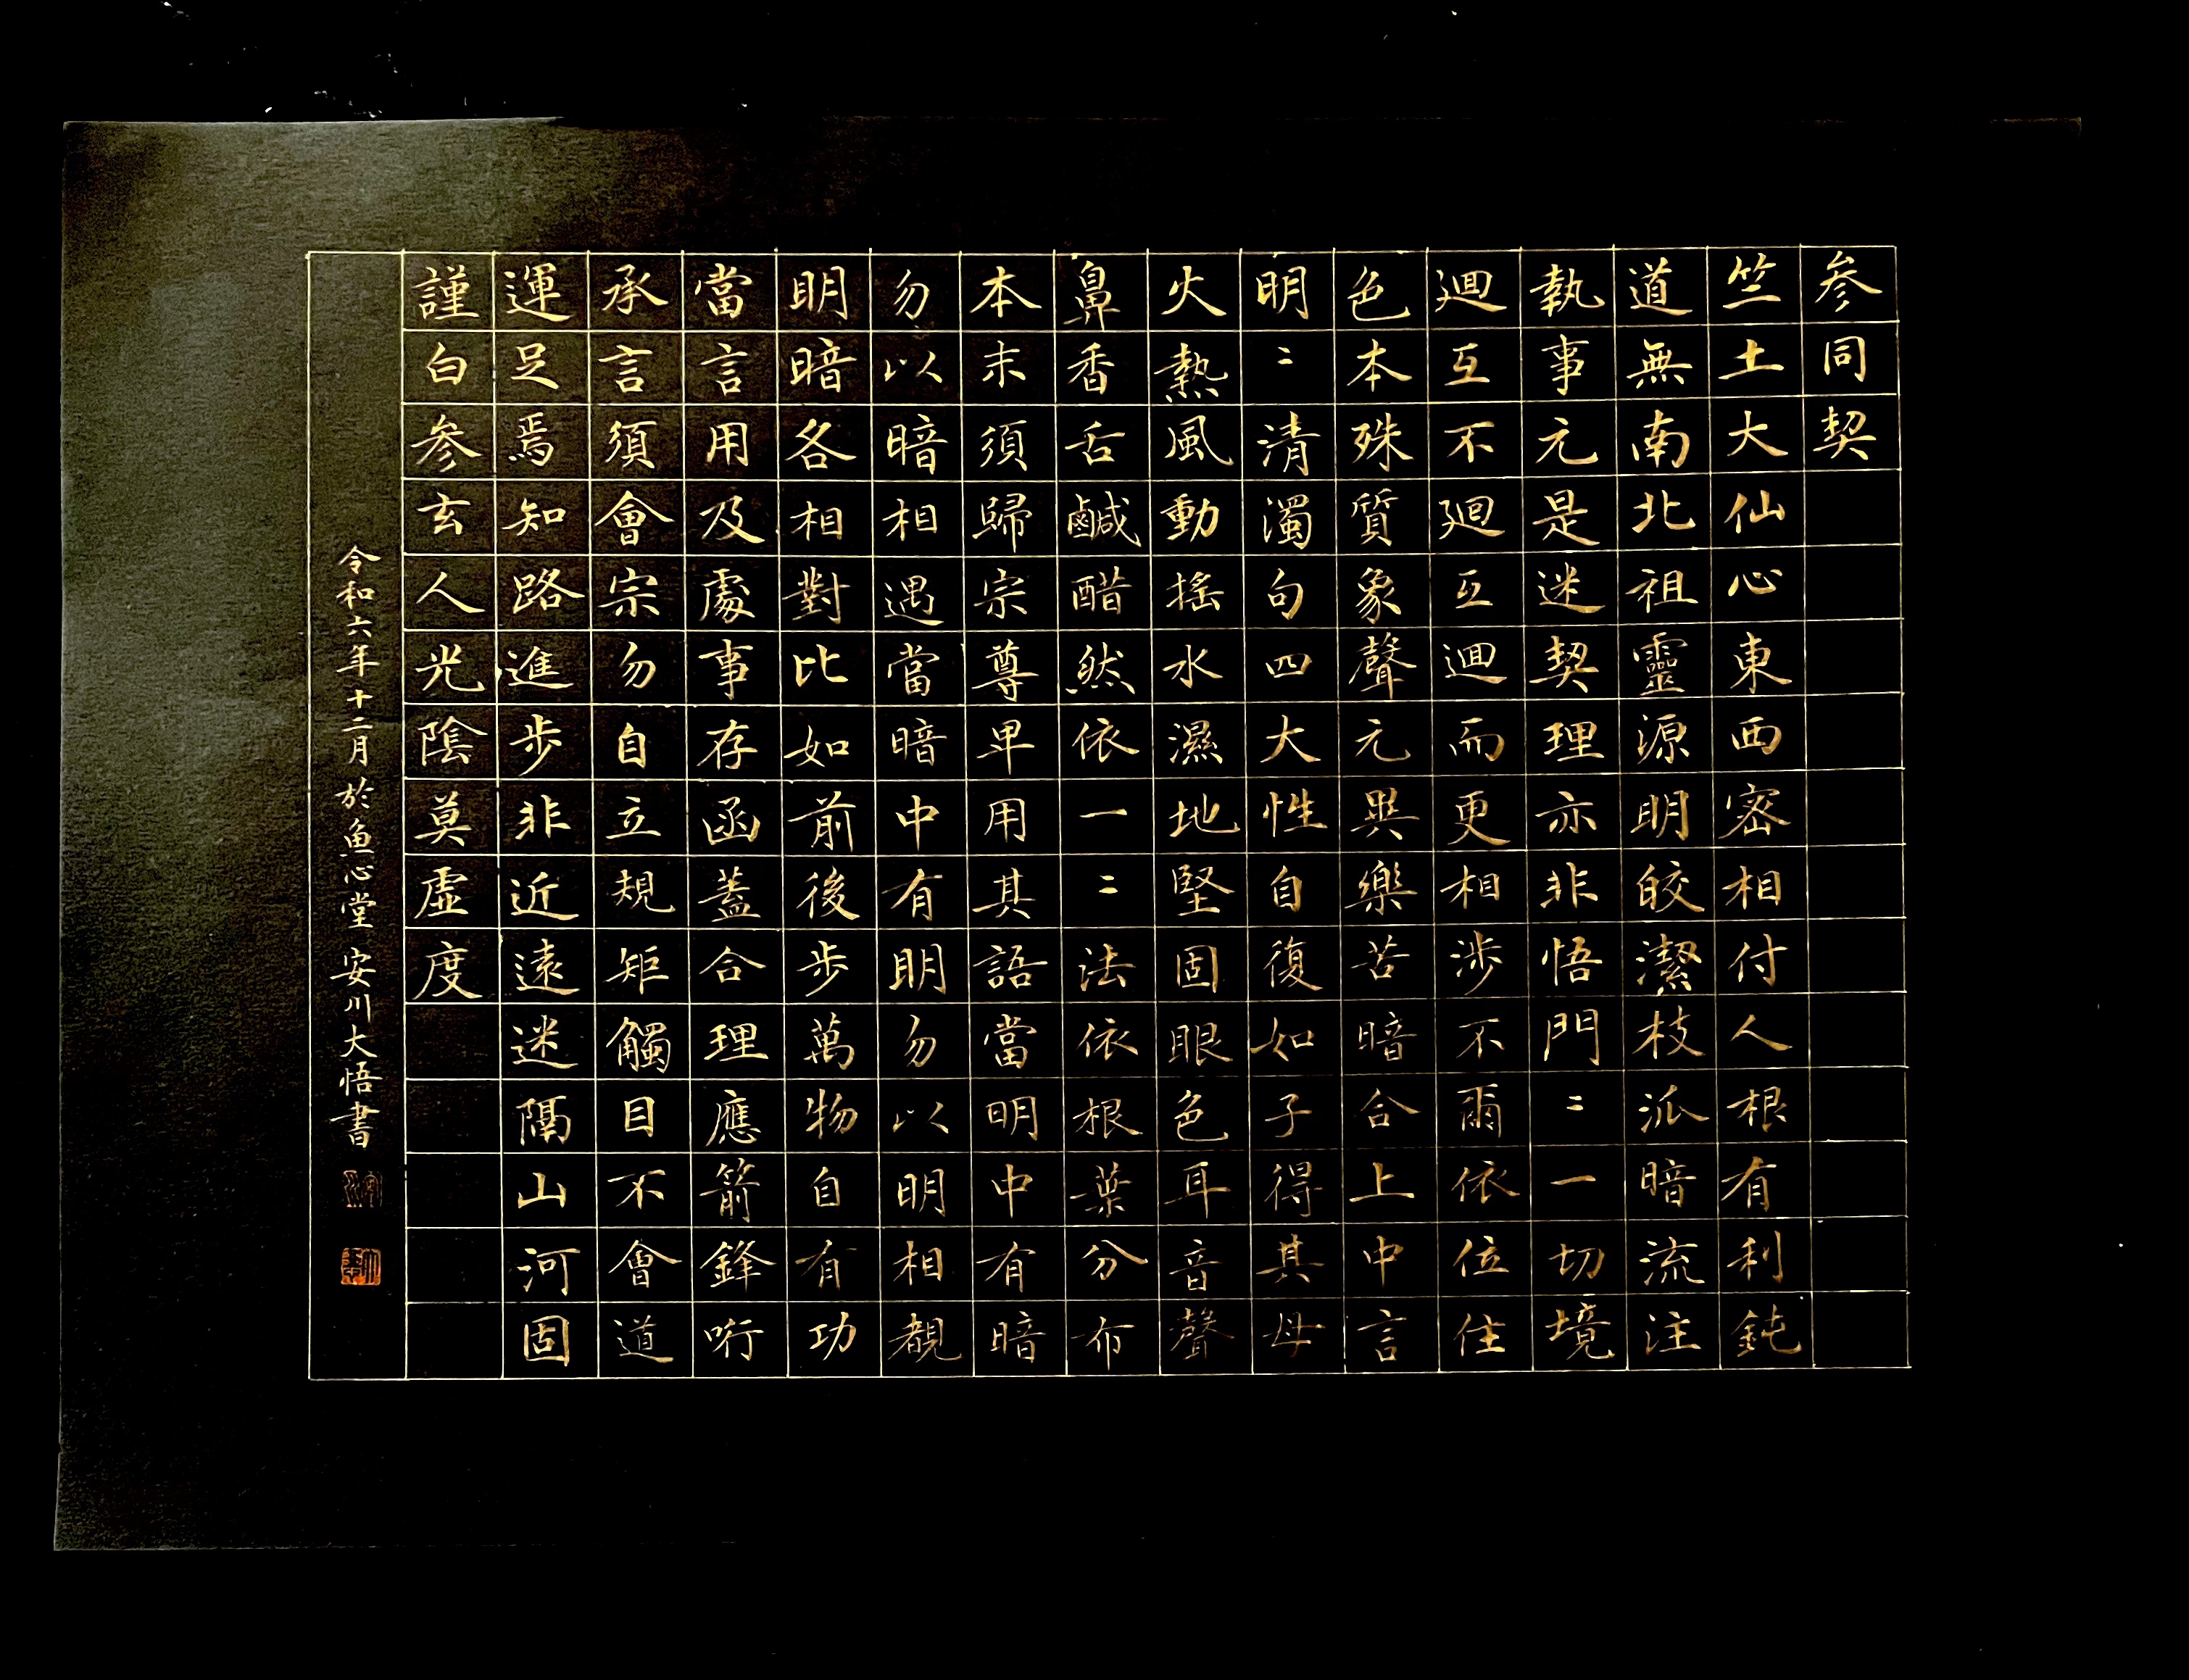 参同契
竺土大仙心東西密相付人根有利鈍
道無南北祖靈源明皎潔枝派暗流注
執事元是迷契理亦非悟門〻一切境
廻互不廻互廻而更相渉不爾依位住
色本殊質象聲元異樂苦暗合上中言
明〻清濁句四大性自復如子得其母
火熱風動搖水濕地堅固眼色耳音聲
鼻香舌鹹醋然依一〻法依根葉分布
本末須歸宗尊卑用其語當明中有暗
勿以暗相遇當暗中有明勿以明相覩
明暗各相對比如前後歩萬物自有功
當言用及處事存函蓋合理應箭鋒
承言須會宗勿自立規矩觸目不會道
運足焉知路進歩非近遠迷隔山河固
謹白参玄人光陰莫虚度
令和六年十二月於魚心堂 安川大悟書